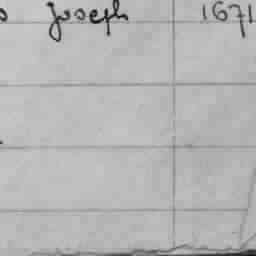 Joseph 1671